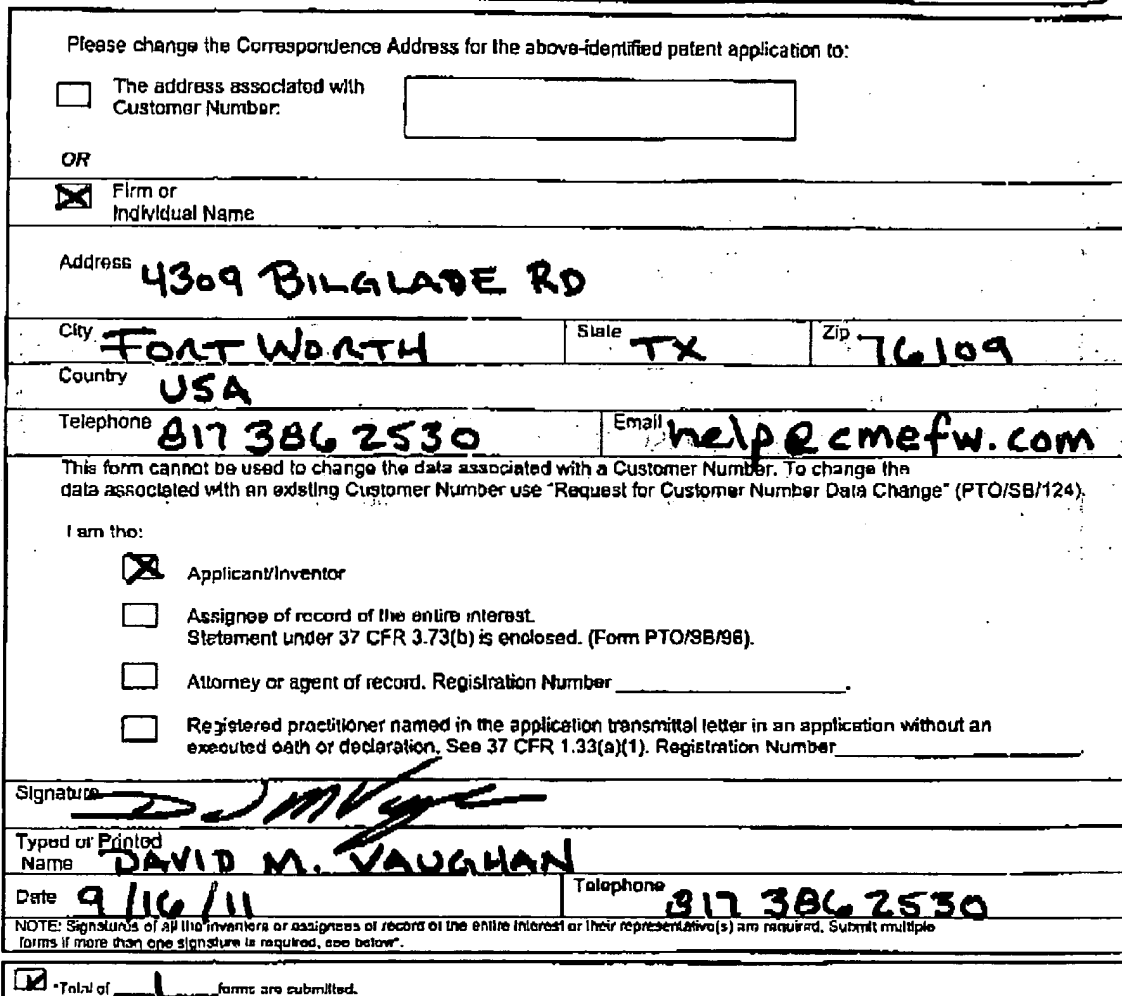 Please change the Correspondence Address for the above-identified patent application to:
The address associated with
Customer Number:
OR
Firm or
Individual Name
Address 4309 BILGLADE RD
City FORT WORTH State TX Zip 76109
Country USA
Telephone 817 386 2530 Email help@cmefw.com
This form cannot be used to change the data associated with a Customer Number. To change the
data associated with an existing Customer Number use "Request for Customer Number Data Change" (PTO/SB/124).
I am the:
Applicant/Inventor
Assignee of record of the entire interest.
Statement under 37 CFR 3.73(b) is enclosed. (Form PTO/SB/96).
Attorney or agent of record. Registration Number ____________.
Registered practitioner named in the application transmittal letter in an application without an
executed oath or declaration. See 37 CFR 1.33(a)(1). Registration Number____________.
Signature
Typed or Printed
Name DAVID M. VAUGHAN
Date 9/16/11 Telephone 817 386 2530
NOTE: Signatures of all the inventors or assignees of record of the entire interest or their representative(s) are required. Submit multiple
forms if more than one signature is required, see below*.
*Total of 1 forms are submitted.